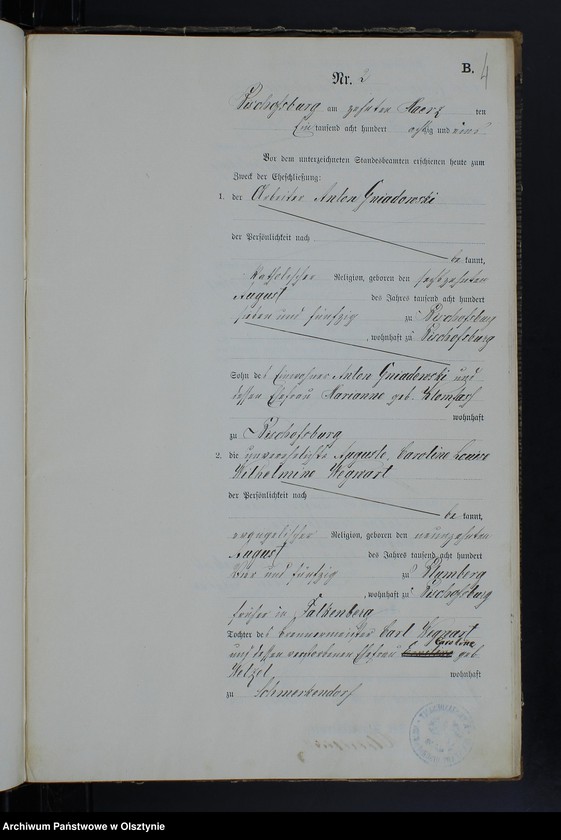 B.
4
Nr. 2
Bischofsburg am zehnten Maerz ten
Ein tausend acht hundert achtzig und eins
Vor dem unterzeichneten Standesbeamten erschienen heute zum
Zweck der Eheschließung:
1. der Arbeiter Anton Gniadowski
der Persönlichkeit nach
be kannt,
katholischer Religion, geboren den sechzehnten
August des Jahres tausend acht hundert
sieben und fünfzig zu Bischofsburg
, wohnhaft zu Bischofsburg
Sohn des Einwohner Anton Gniadowski und
dessen Ehefrau Marianne geb.
wohnhaft
zu Bischofsburg
2. die unverehelichte Auguste, Caroline Louise
Wilhelmine Wegnart
der Persönlichkeit nach
be kannt,
evangelischer Religion, geboren den neunzehnten
August des Jahres tausend acht hundert
vier und fünfzig zu Blumberg
, wohnhaft zu Bischofsburg
früher in Falkenberg
Tochter des Brennermeister Carl Wegnart
Caroline
und dessen verstorbenen Ehefrau geb.
Wetzel wohnhaft
zu Schmerkendorf
Archiwum Państwowe w Olsztynie